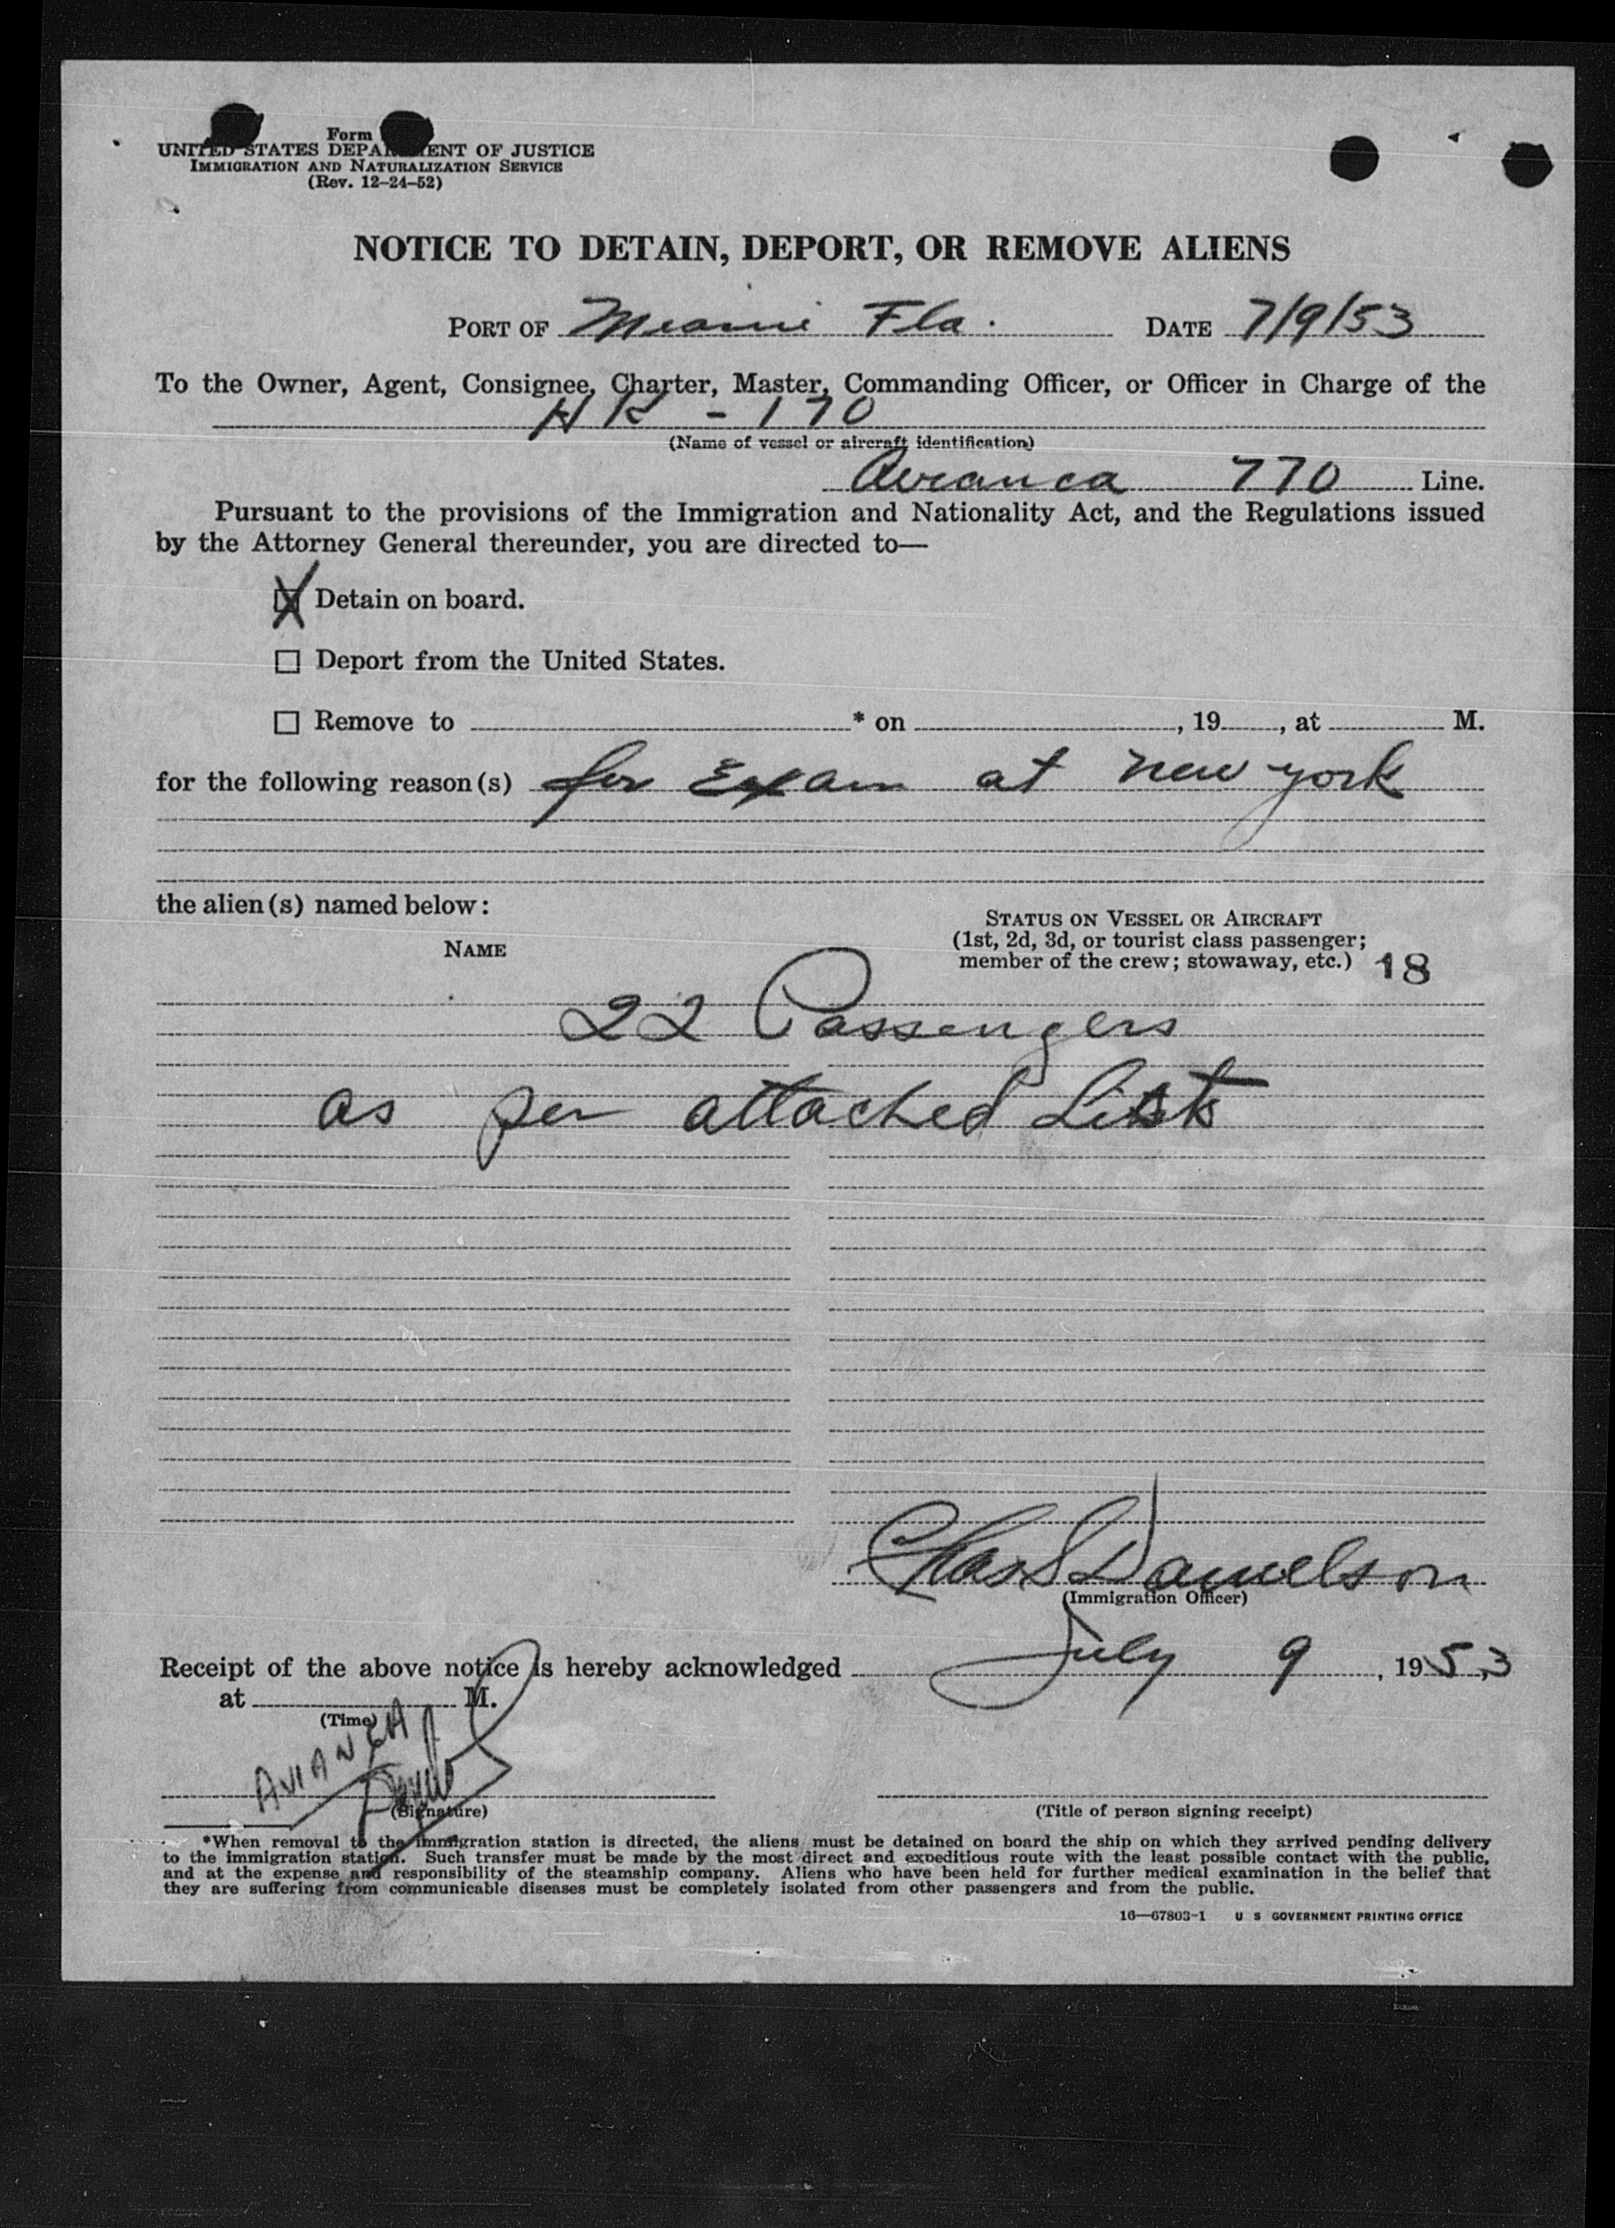 Form
UNITED STATES DEPARTMENT OF JUSTICE
IMMIGRATION AND NATURALIZATION SERVICE
(Rev. 12-24-52)
NOTICE TO DETAIN, DEPORT, OR REMOVE ALIENS
PORT OF Miami Fla. DATE 7/9/53
To the Owner, Agent, Consignee, Charter, Master, Commanding Officer, or Officer in Charge of the
HK - 170
(Name of vessel or aircraft identification)
Avianca 770 Line.
Pursuant to the provisions of the Immigration and Nationality Act, and the Regulations issued
by the Attorney General thereunder, you are directed to—
X Detain on board.
☐ Deport from the United States.
☐ Remove to * on , 19 , at M.
for the following reason(s) for Exam at new york
the alien(s) named below:
NAME
STATUS ON VESSEL OR AIRCRAFT
(1st, 2d, 3d, or tourist class passenger;
member of the crew; stowaway, etc.) 18
22 Passengers
as per attached List
Chas S Danielson
(Immigration Officer)
Receipt of the above notice is hereby acknowledged July 9, 1953
at M.
(Time)
AVIANCA
(Signature)
(Title of person signing receipt)
*When removal to the immigration station is directed, the aliens must be detained on board the ship on which they arrived pending delivery
to the immigration station. Such transfer must be made by the most direct and expeditious route with the least possible contact with the public,
and at the expense and responsibility of the steamship company. Aliens who have been held for further medical examination in the belief that
they are suffering from communicable diseases must be completely isolated from other passengers and from the public.
16—67803-1 U S GOVERNMENT PRINTING OFFICE